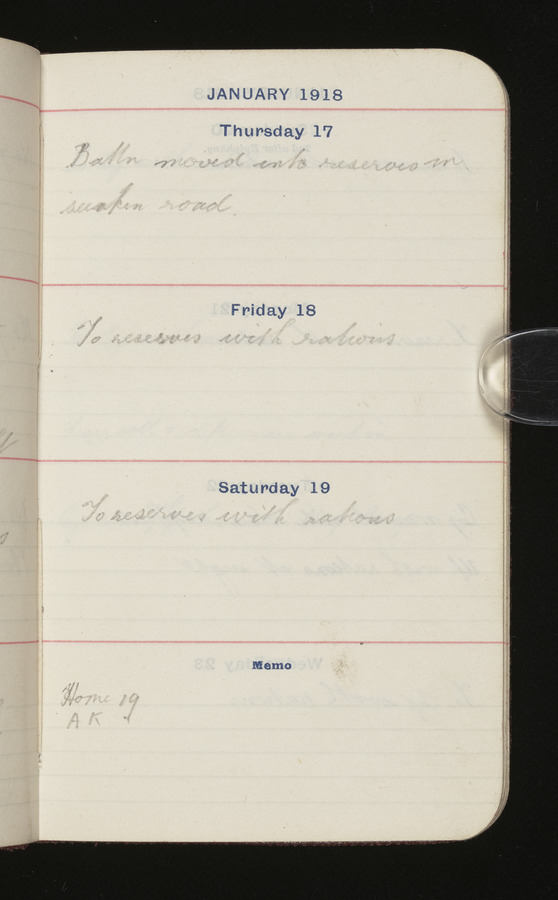 JANUARY 1918
Thursday 17
Battn moved into reserves in
sunken road.
Friday 18
To reserves with rations
Saturday 19
To reserves with rations
Memo
Home 19
A K